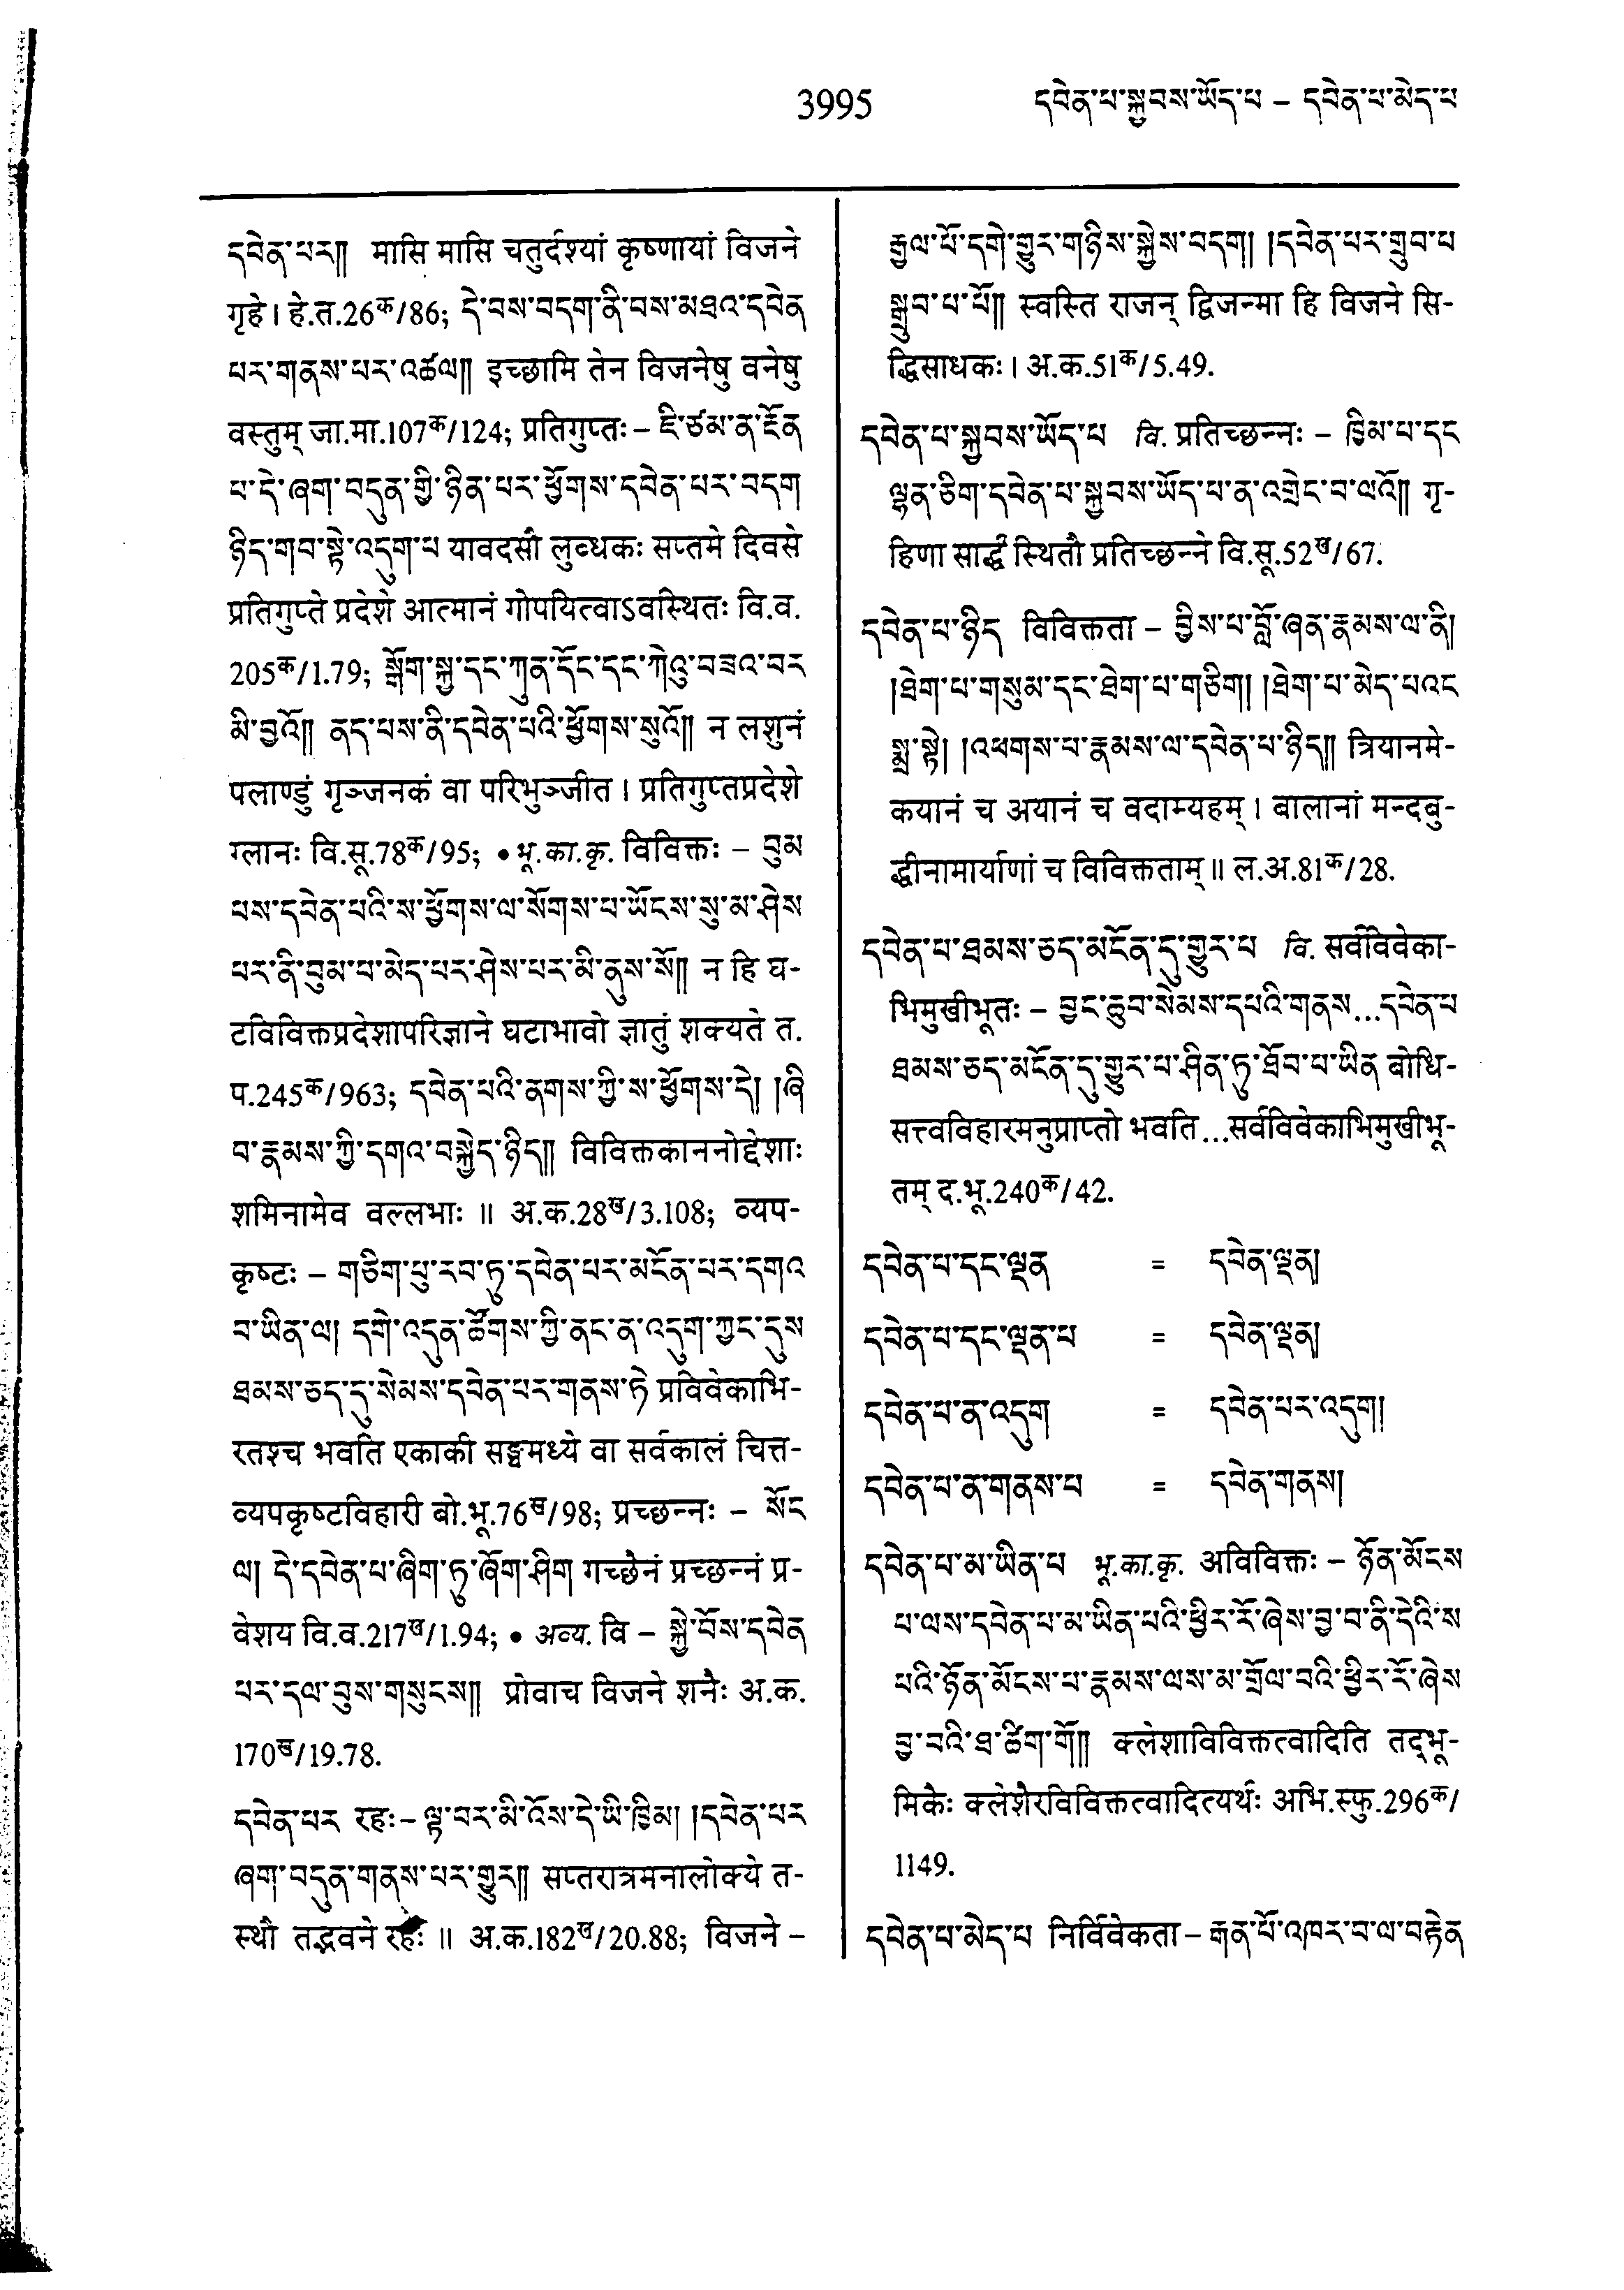 3995 དབེན་པ་སྐྱབས་ཡོད་པ – དབེན་པ་མེད་པ
དབེན་པར།། मासि मासि चतुर्दश्यां कृष्णायां विजने
गृहे । हे.त.26क/86; དེ་བས་བདག་ནི་བས་མཐའ་དབེན
པར་གནས་པར་འཚལ།། इच्छामि तेन विजनेषु वनेषु
वस्तुम् जा.मा.107क/124; प्रतिगुप्तः – ཇི་ཙམ་ན་རྔོན
པ་དེ་ཞག་བདུན་གྱི་ཉིན་པར་ཕྱོགས་དབེན་པར་བདག
ཉིད་གབ་སྟེ་འདུག་པ यावदसौ लुब्धकः सप्तमे दिवसे
प्रतिगुप्ते प्रदेशे आत्मानं गोपयित्वाऽवस्थितः वि.व.
205क/1.79; སྒོག་སྐྱ་དང་ཀུན་དོང་དང་ཀེའུ་བཟའ་བར
མི་བྱའོ།། ནད་པས་ནི་དབེན་པའི་ཕྱོགས་སུའོ།། न लशुनं
पलाण्डुं गृञ्जनकं वा परिभुञ्जीत । प्रतिगुप्तप्रदेशे
ग्लानः वि.सू.78क/95; • भू.का.कृ. विविक्तः – བུམ
པས་དབེན་པའི་ས་ཕྱོགས་ལ་སོགས་པ་ཡོངས་སུ་མ་ཤེས
པར་ནི་བུམ་པ་མེད་པར་ཤེས་པར་མི་ནུས་སོ།། न हि घ-
टविविक्तप्रदेशापरिज्ञाने घटाभावो ज्ञातुं शक्यते त.
प.245क/963; དབེན་པའི་ནགས་ཀྱི་ས་ཕྱོགས་དེ། །ཞི
བ་རྣམས་ཀྱི་དགའ་བསྐྱེད་ཉིད།། विविक्तकाननोद्देशाः
शमिनामेव वल्लभाः ॥ अ.क.28ख/3.108; व्यप-
कृष्टः – གཅིག་པུ་རབ་ཏུ་དབེན་པར་མངོན་པར་དགའ
བ་ཡིན་ལ། དགེ་འདུན་ཚོགས་ཀྱི་ནང་ན་འདུག་ཀྱང་དུས
ཐམས་ཅད་དུ་སེམས་དབེན་པར་གནས་ཏེ प्रविवेकाभि-
रतश्च भवति एकाकी सङ्घमध्ये वा सर्वकालं चित्त-
व्यपकृष्टविहारी बो.भू.76ख/98; प्रच्छन्नः – སོང
ལ། དེ་དབེན་པ་ཞིག་ཏུ་ཞོག་ཤིག गच्छैनं प्रच्छन्नं प्र-
वेशय वि.व.217ख/1.94; • अव्य. वि – སྐྱེ་བོས་དབེན
པར་དལ་བུས་གསུངས།། प्रोवाच विजने शनैः अ.क.
170ख/19.78.
དབེན་པར रहः – ལྟ་བར་མི་འོས་དེ་ཡི་ཁྱིམ། །དབེན་པར
ཞག་བདུན་གནས་པར་གྱུར།། सप्तरात्रमनालोक्ये त-
स्थौ तद्भवने रहः ॥ अ.क.182ख/20.88; विजने –
རྒྱལ་པོ་དགེ་གྱུར་གཉིས་སྐྱེས་བདག། །དབེན་པར་གྲུབ་པ
སྒྲུབ་པ་པོ།། स्वस्ति राजन् द्विजन्मा हि विजने सि-
द्धिसाधकः । अ.क.51क/5.49.
དབེན་པ་སྐྱབས་ཡོད་པ वि. प्रतिच्छन्नः – ཁྱིམ་པ་དང
ལྷན་ཅིག་དབེན་པ་སྐྱབས་ཡོད་པ་ན་འགྲེང་བ་ལའོ།། गृ-
हिणा सार्द्धं स्थितौ प्रतिच्छन्ने वि.सू.52ख/67.
དབེན་པ་ཉིད विविक्तता – བྱིས་པ་བློ་ཞན་རྣམས་ལ་ནི།
།ཐེག་པ་གསུམ་དང་ཐེག་པ་གཅིག། །ཐེག་པ་མེད་པའང
སྨྲ་སྟེ། །འཕགས་པ་རྣམས་ལ་དབེན་པ་ཉིད།། त्रियानमे-
कयानं च अयानं च वदाम्यहम् । बालानां मन्दबु-
द्धीनामार्याणां च विविक्तताम् ॥ ल.अ.81क/28.
དབེན་པ་ཐམས་ཅད་མངོན་དུ་གྱུར་པ वि. सर्वविवेका-
भिमुखीभूतः – བྱང་ཆུབ་སེམས་དཔའི་གནས...དབེན་པ
ཐམས་ཅད་མངོན་དུ་གྱུར་པ་ཤིན་ཏུ་ཐོབ་པ་ཡིན बोधि-
सत्त्वविहारमनुप्राप्तो भवति...सर्वविवेकाभिमुखीभू-
तम् द.भू.240क/42.
དབེན་པ་དང་ལྡན = དབེན་ལྡན།
དབེན་པ་དང་ལྡན་པ = དབེན་ལྡན།
དབེན་པ་ན་འདུག = དབེན་པར་འདུག།
དབེན་པ་ན་གནས་པ = དབེན་གནས།
དབེན་པ་མ་ཡིན་པ भू.का.कृ. अविविक्तः – ཉོན་མོངས
པ་ལས་དབེན་པ་མ་ཡིན་པའི་ཕྱིར་རོ་ཞེས་བྱ་བ་ནི་དེའི་ས
པའི་ཉོན་མོངས་པ་རྣམས་ལས་མ་གྲོལ་བའི་ཕྱིར་རོ་ཞེས
བྱ་བའི་ཐ་ཚིག་གོ།། क्लेशाविविक्तत्वादिति तद्भू-
मिकैः क्लेशैरविविक्तत्वादित्यर्थः अभि.स्फु.296क/
1149.
དབེན་པ་མེད་པ निर्विवेकता – རྒན་པོ་འཁར་བ་ལ་བརྟེན